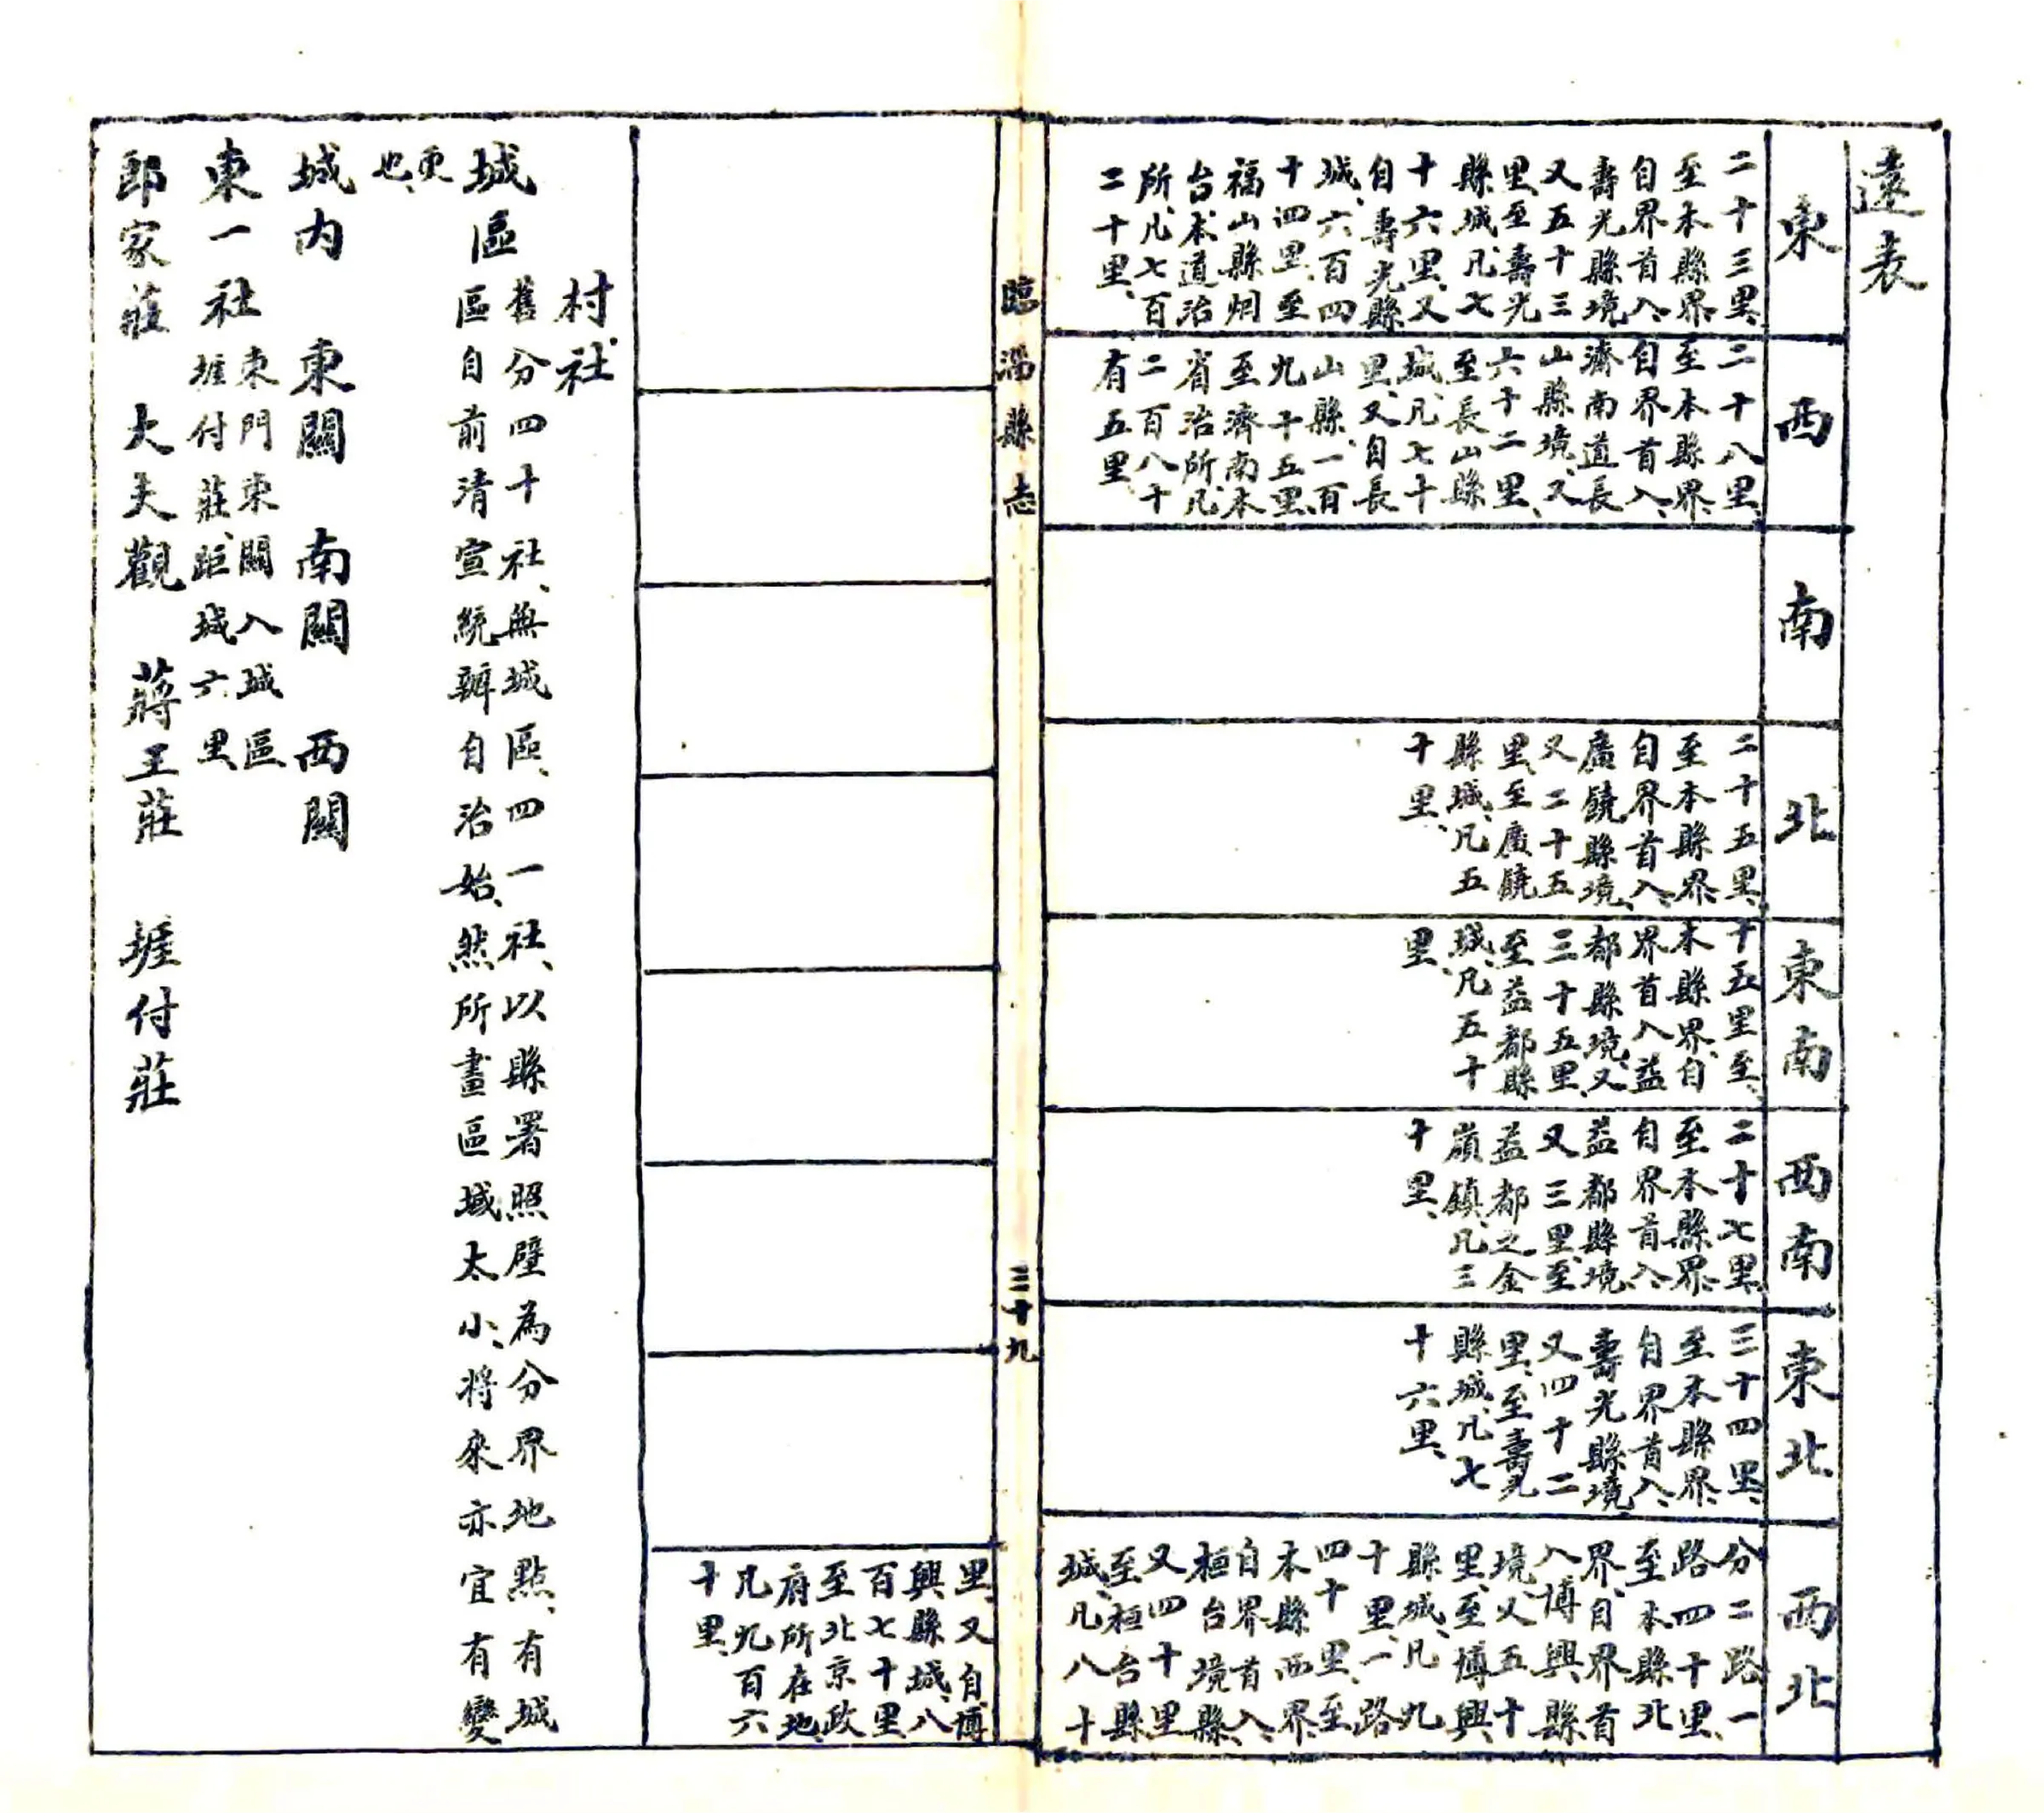 遠表
東
二十三里、
至本縣界、
自界首入、
壽光縣境、
又五十三
里、至壽光
縣城、凡七
十六里、又
自壽光縣
城、六百四
十四里、至
福山縣烟
台本道治
所、凡七百
二十里、
西
二十八里、
至本縣界、
自界首入、
濟南道長
山縣境、又
六十二里、
至長山縣
城、凡七十
里、又自長
山縣、一百
九十五里、
至濟南本
省治所、凡
二百八十
有五里、
南
北
二十五里、
至本縣界、
自界首入、
廣饒縣境、
又二十五
里、至廣饒
縣城、凡五
十里、
東南
十五里至、
本縣界、自
界首入益
都縣境、又
三十五里、
至益都縣
城、凡五十
里、
西南
二十七里、
至本縣界、
自界首入、
益都縣境、
又三里、至
益都之金
嶺鎮、凡三
十里、
東北
三十四里、
至本縣界、
自界首入、
壽光縣境、
又四十二
里、至壽光
縣城、凡七
十六里、
西北
分二路一
路四十里、
至本縣北
界、自界首
入博興縣
境、又五十
里、至博興
縣城、凡九
十里、一路
四十里、至
本縣西界、
自界首入、
桓台境縣、
又四十里
至桓台縣
城、凡八十
臨淄縣志
三十九
里、又自博
興縣城、八
百七十里、
至北京政
府所在地、
凡九百六
十里、
村社
城區
舊分四十社、無城區、四一社、以縣署照壁為分界地點、有城
區自前清宣統辦自治始、然所畫區域太小、將來亦宜有變
更
也、
城内 東關 南關 西關
東一社
東門東關入城區
堐付莊、距城六里、
郎家莊 大夫觀 蔣王莊 堐付莊